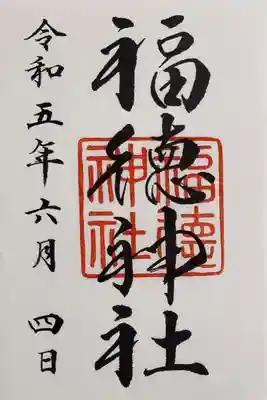 福徳神社
福徳神社
令和五年六月 四日